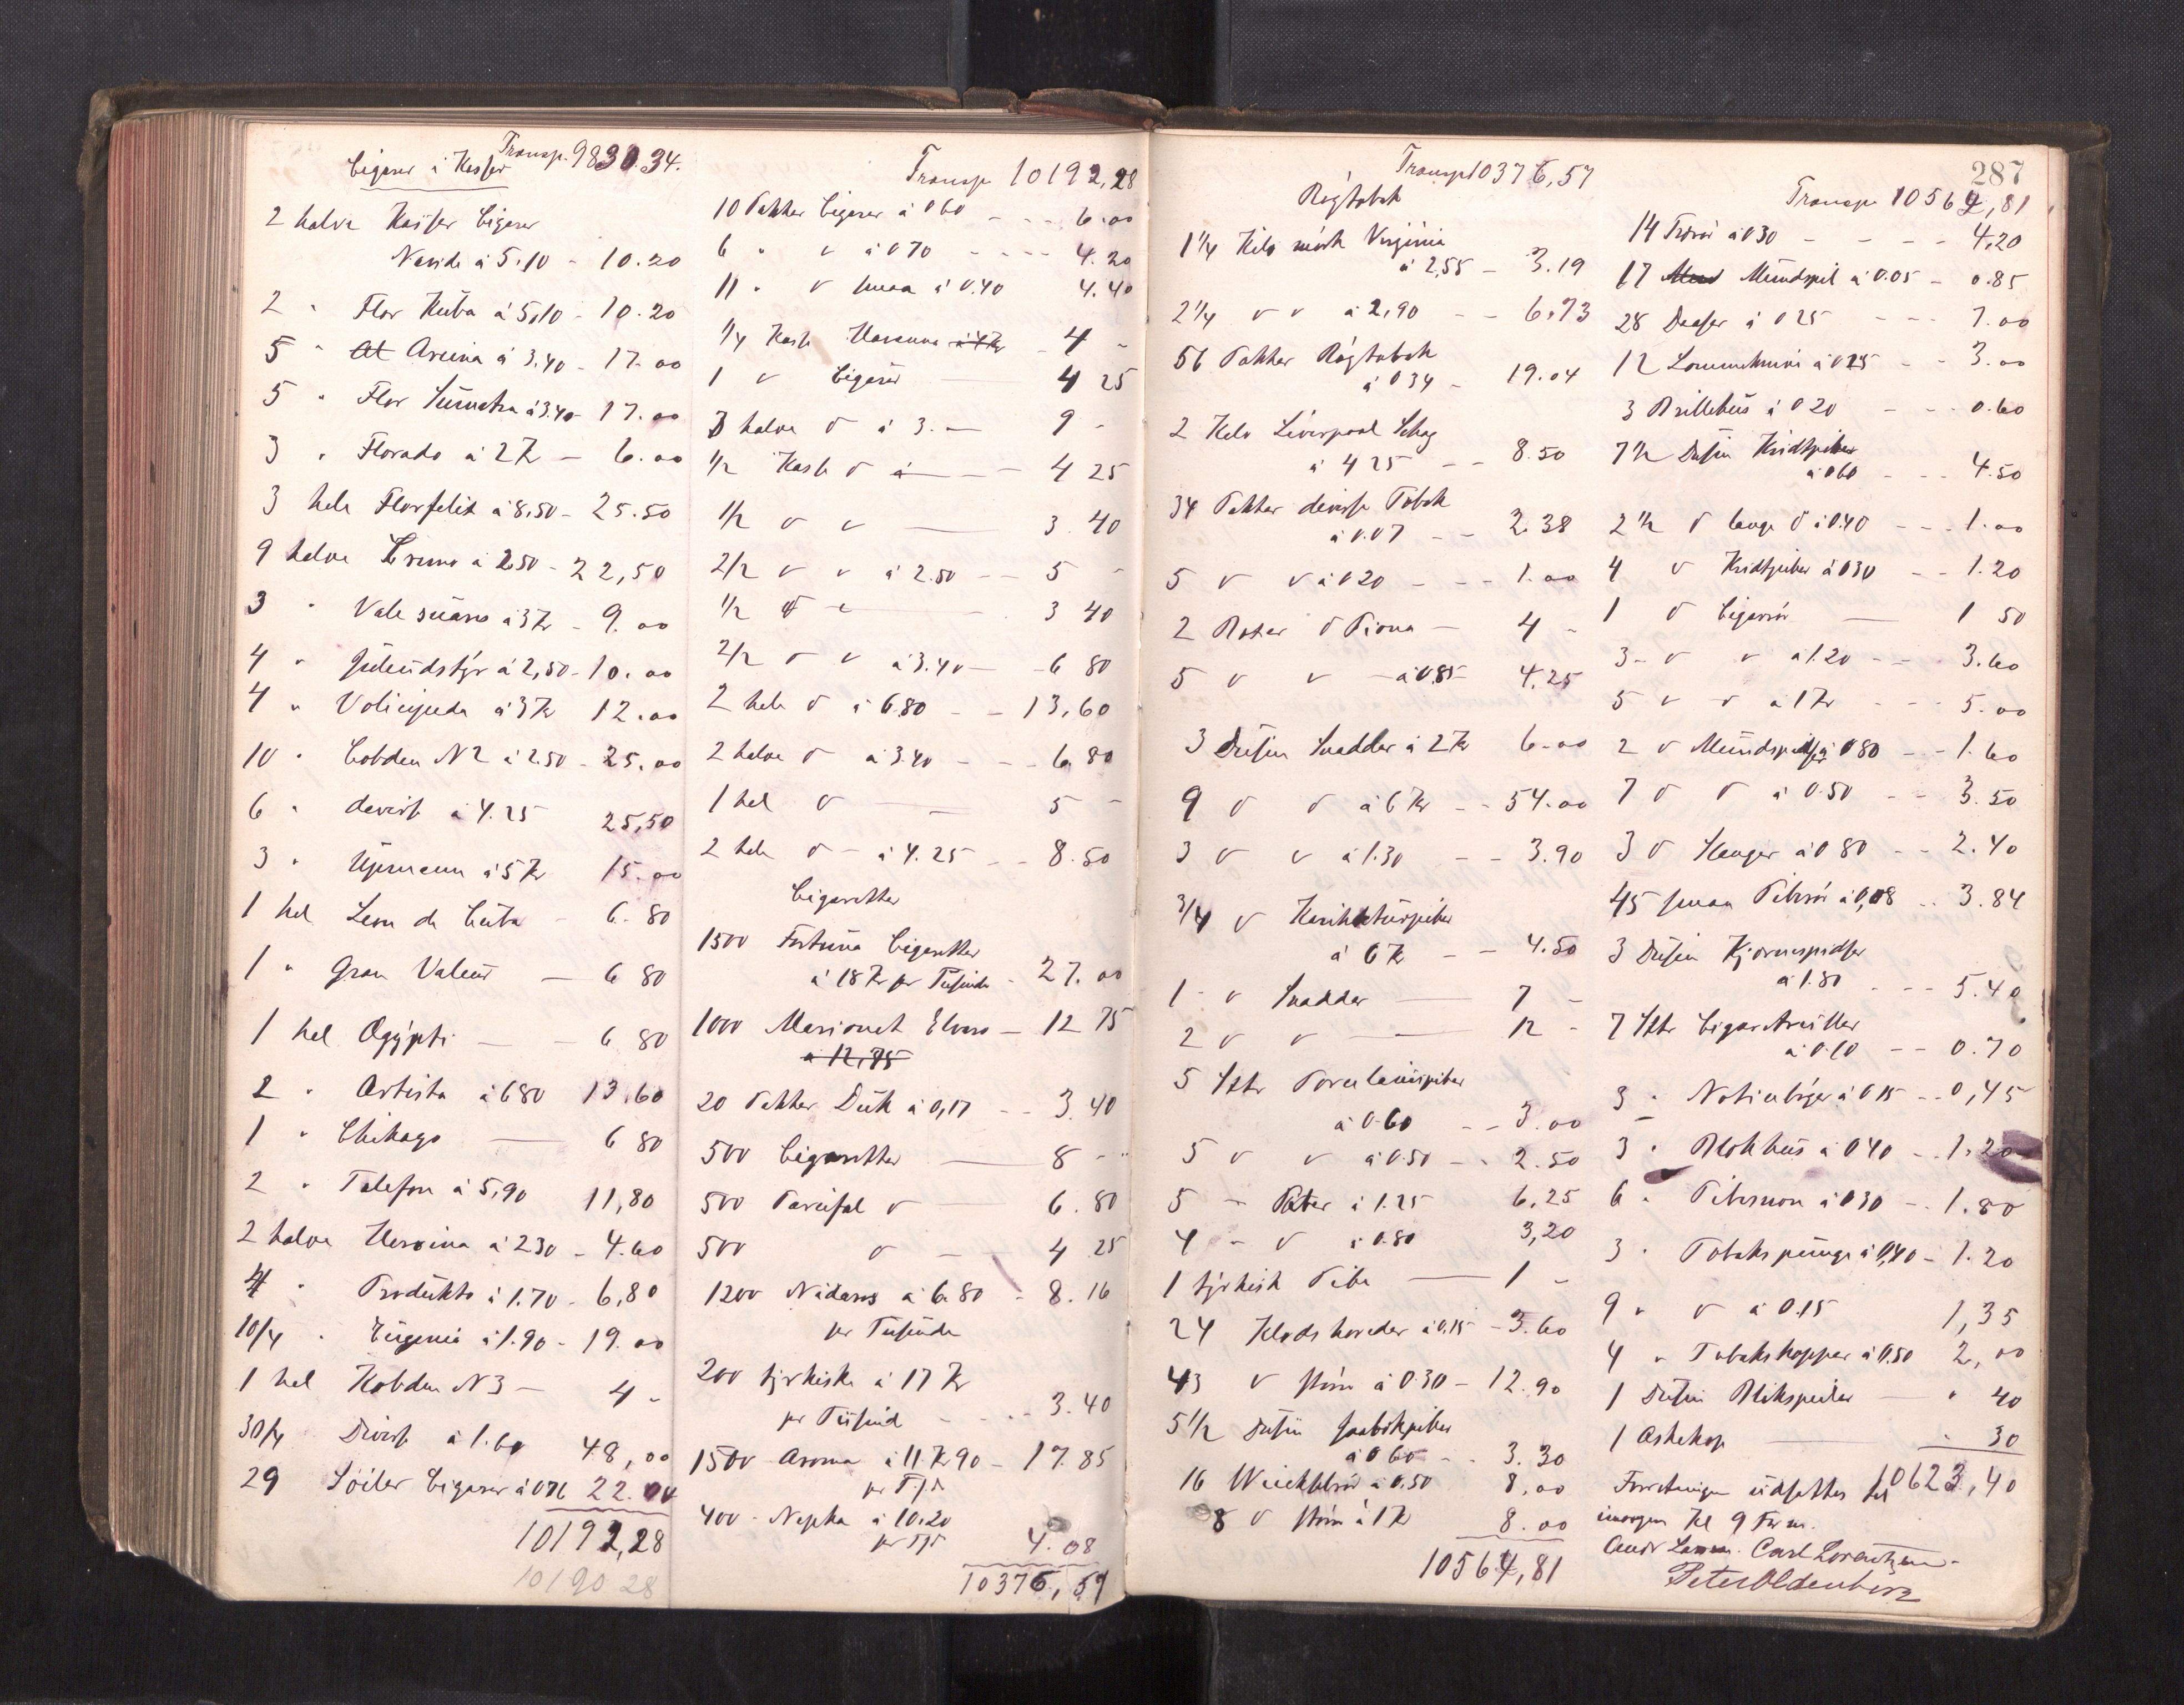 Transp. 9830.34.
Cigarer i Kasser
2 halve Kasser Cigarer
à 5.10 - 10.20
2 " Flor Kuba à 5,10 - 10.20
5 " à 3.40 - 17.00
5 " Flor Sumatra à 3.40 - 17.00
3 " Florado à 2 Kr - 6.00
3 hele Florfelix à 8.50 - 25.50
9 halve à 2.50 - 22,50
3 " à 3 Kr - 9.00
4 " à 2,50 - 10.00
4 " à 3 Kr 12.00
10 " Cobden N 2 à 2.50 - 25.00
6 " diverse à 4.25 25,50
3 " Upmann à 5 Kr 15.00
1 hel Leon de Cuba - 6.80
1 " Gran Valeur — 6 80
1 hel Ægypti — 6 80
2 " Artista à 6 80 13,60
1 " Chikago — 6 80
2 " Telefon à 5,90 11,80
2 halve Heroina à 2 30 - 4.60
4 " Produkto à 1.70 - 6,80
10/4 " Eugenia à 1.90 - 19.00
1 hel Kobden N 3 — 4 -
30/4 Diverse à 1.60 48,00
29 Söiler Cigarer à 0 76 22.04
10192,28
10190 28
Transp 10192,28
10 Pakker Cigarer à 0 60 - - - 6.00
6 " v à 0 70 - - - 4.20
11 " v smaa à 0.40 4.40
1/4 Kasse Havanna à 4 Kr - 4 -
1 v Cigarer — 4 25
3 halve v à 3. — 9 -
1/2 Kasse v à — 4 25
1/2 v v — 3.40
2/2 v v à 2.50 - - 5 -
1/2 v — 3 40
2/2 v v à 3.40 — 6 80
2 hele v à 6.80 - - 13,60
2 halve v à 3.40 - - - 6.80
1 hel v — 5 -
2 hele v - à 4.25 - - 8.50
Cigaretter
1500 Fortuna Cigaretter
à 18 Kr pr Tusinde - 27.00
1000 Marionet Elvaro — 12 75
à 12,75
20 Pakker Duk à 0,17 - - 3.40
500 Cigaretter — 8 -
500 Parcifal v — 6.80
500 v — 4 25
1200 Nidaros à 6.80 - 8.16
pr Tusinde
200 tyrkiske à 17 Kr
pr Tusind - - - 3.40
1500 Aroma à 11 Kr 90 - 17.85
400 - à 10.20
4.08
10376,57
Transp 10376,57
Rögtobak
1 1/4 Kilo mörk Virginia
à 2,55 - 3.19
2 1/4 v v à 2,90 - - 6.73
56 Pakker Rögtobak
à 0 34 - 19.04
2 Kilo Liverpool Schag
à 4 25 - - 8.50
34 Pakker diverse Tobak
à 0.07 - - 2.38
5 v v à 0 20 - - - 1.00
2 v — 4 -
5 v v - à 0.85 4.25
3 Dusin Snadder à 2 Kr 6.00
9 v v à 6 Kr - - 54.00
3 v v à 1.30 - - 3.90
3/4 v Karikkaturpiber
à 6 Kr - - 4.50
1 - v Snadder — 7 -
2 v v — 12 -
5 Stkr Porcelainspiber
à 0.60 - - 3.00
5 v v à 0.50 - - 2.50
5 - à 1.25 6.25
4 - v à 0.80 3,20
1 tyrkisk Pibe — 1 -
24 Klodshoveder à 0.15 - 3.60
43 v större à 0.30 - 12.90
5 1/2 Dusin
à 0 60 - - 3.30
16 à 0.50 8.00
8 v större à 1 Kr 8.00
10564,81
287
Transp 10564,81
14 à 0 30 - - - - 4,20
17 Mundspil à 0.05 - 0.85
28 Daaser à 0 25 - - - 7.00
12 Lommeknive à 0.25 - - 3.00
3 Brillehus à 0 20 - - - 0.60
7 1/2 Dusin Kridtpiber
à 0 60 - - - 4.50
2 1/2 v lange v à 0.40 - - - 1.00
4 v Kridtpiber à 0 30 - - 1.20
1 v Cigarrör — 1 50
3 - v v à 1.20 - - - 3.60
5 v v à 1 Kr - - - 5.00
2 v Mundspidser à 0 80 - - 1.60
7 v v à 0.50 - - 3.50
3 v Slanger à 0 80 - - 2.40
45 smaa Piberör à 0,08 - - 3.84
3 Dusin
à 1.80 - - - 5.40
7 Stkr
à 0.10 - - 0.70
3 " Notisböger à 0 15 - - 0,45
3 " à 0 40 - - 1.20
6 " à 0 30 - - 1.80
3 " Tobakspunge à 0,40 - 1.20
9 " v à 0.15 1,35
4 " Tobakskopper à 0.50 2,00
1 Dusin — " 40
1 Askekop — " 30
10623,40
Forretningen udsættes til
imorgen Kl 9 Form.
Carl Lorentzen
Peter Oldenborg